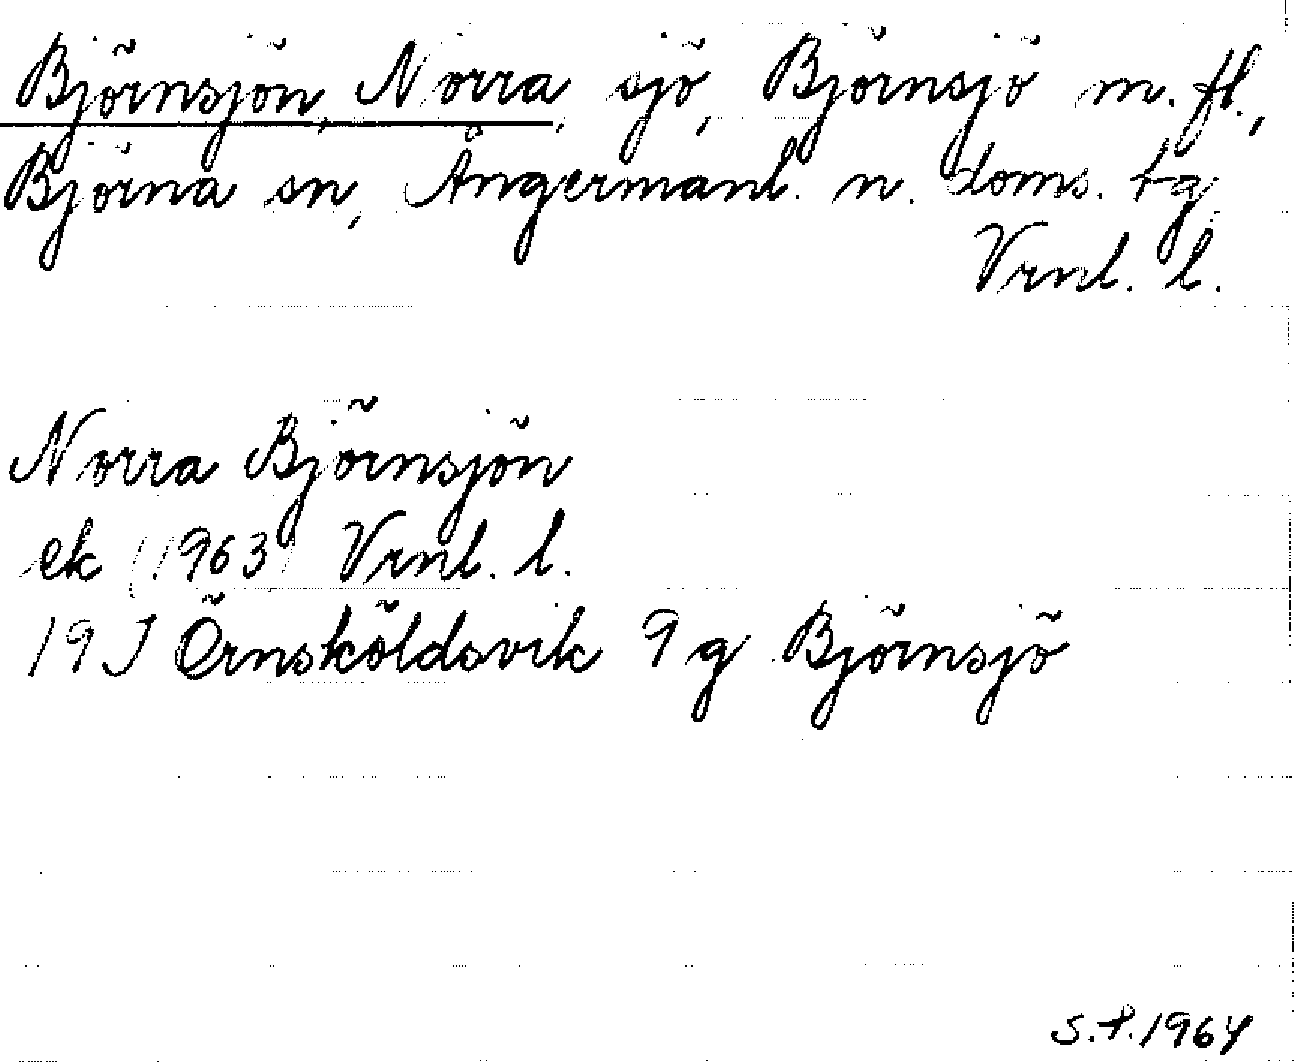 Björnsjön, Norra, sjö, Björnsjö m. fl.,
Björna sn, Ångermanl. n. doms. tg
Vrnl. l.
Norra Björnsjön
ek (1963) Vrnl. l.
19 J Örnsköldsvik 9 g Björnsjö
S.P. 1964